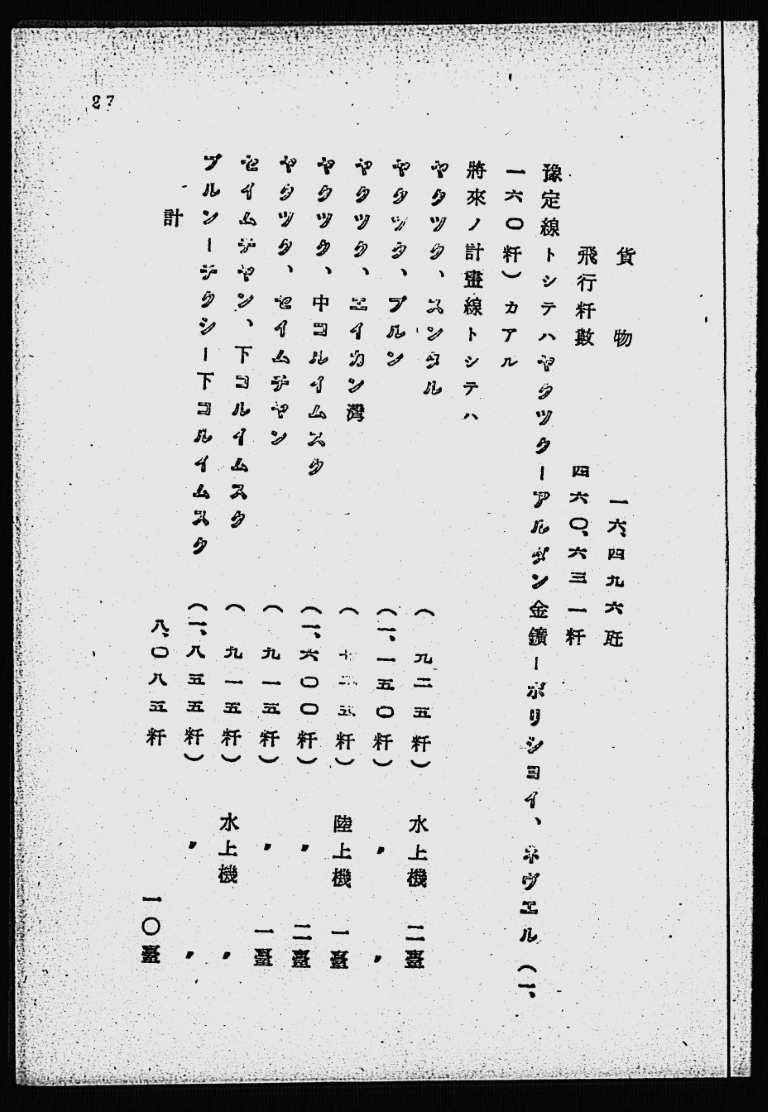 27
貨物 一六、四九六瓩
飛行粁數 四六〇、六三一粁
豫定線トシテハヤクツクーアルダン金鑛ーボリショイ、ネヴエル（一、
一六〇粁）カアル
將來ノ計畫線トシテハ
ヤクツク、スンタル （九二五粁） 水上機 二臺
ヤクツク、ブルン （一、一五〇粁） 〃 〃
ヤクツク、エイカン灣 （七二五粁） 陸上機 一臺
ヤクツク、中コルイムスク （一、六〇〇粁） 〃 二臺
ヤクツク、セイムチヤン （九一五粁） 〃 一臺
セイムチヤン、下コルイムスク （九一五粁） 水上機 〃
ブルンーチクシー下コルイムスク （一、八五五粁） 〃 〃
計 八、〇八五粁 一〇臺